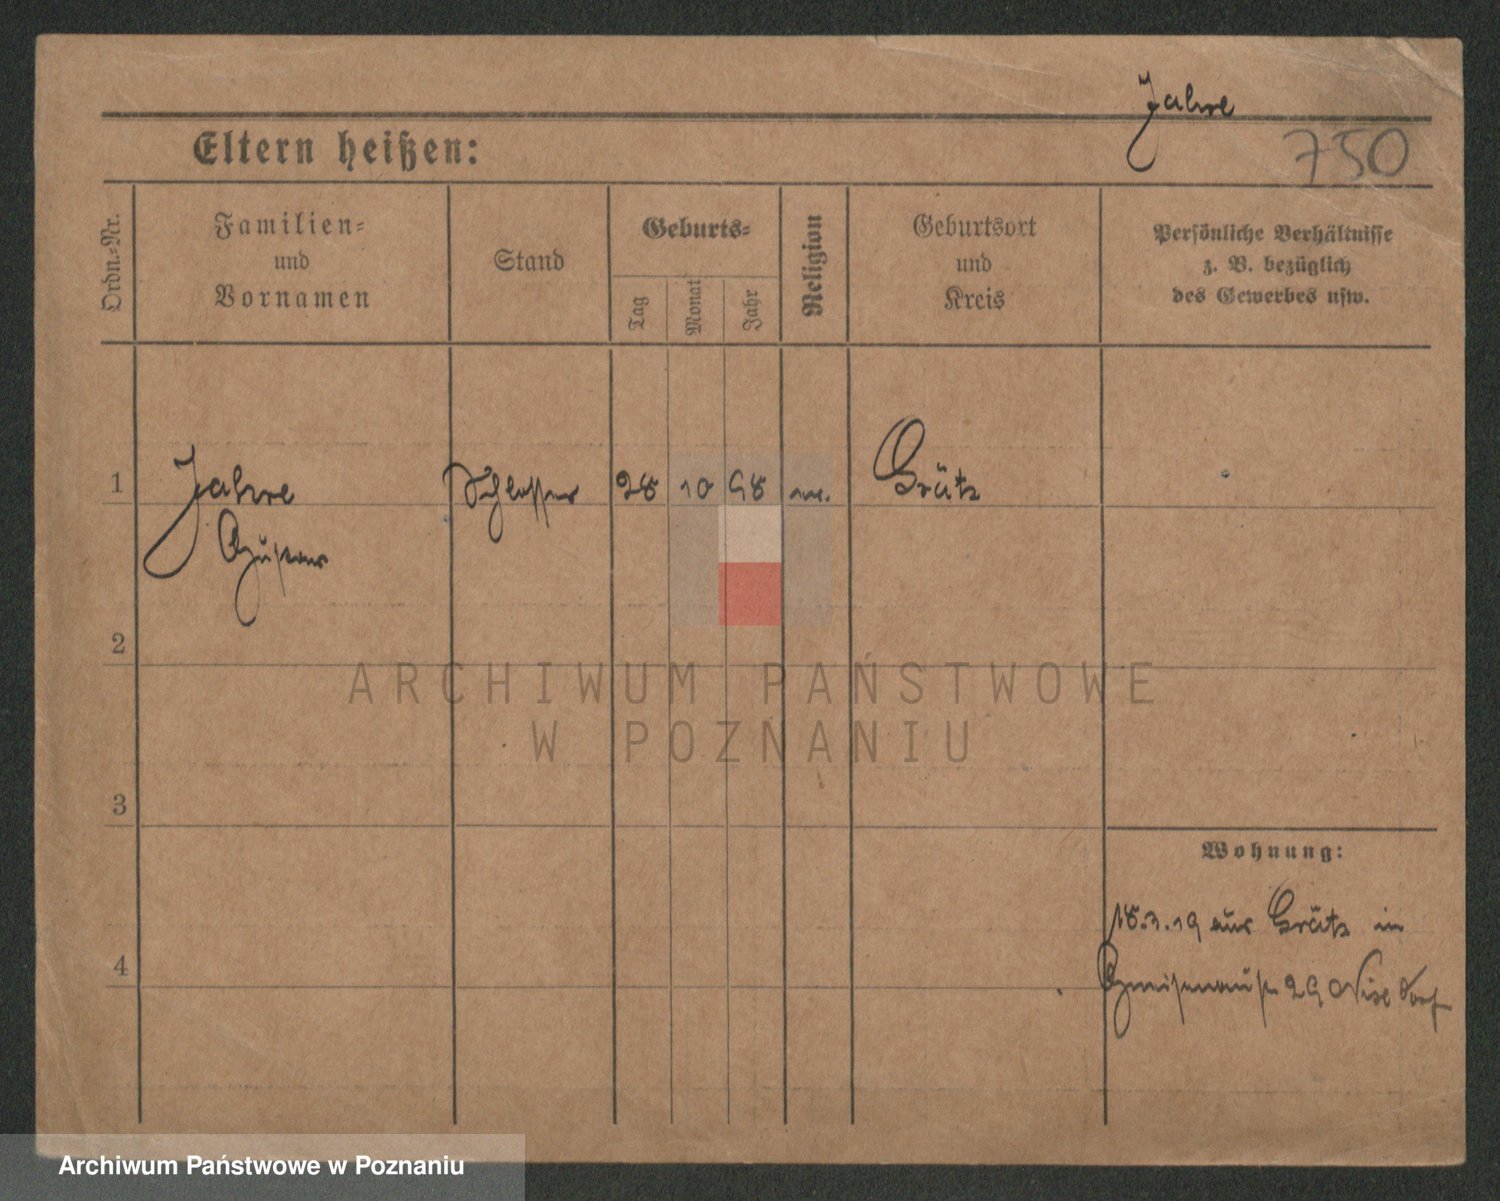 Jahre
Eltern heißen:
750
Ordn.-Nr.
Familien-
und
Vornamen
Stand
Geburts-
Tag
Monat
Jahr
Religion
Geburtsort
und
Kreis
Persönliche Verhältnisse
z. B. bezüglich
des Gewerbes usw.
1
Jahre
Gustav
Schlosser
28
10
98
ev.
Grätz
2
3
4
Wohnung:
18.3.19 aus Grätz in
Gneisenaustr 29
ARCHIWUM PAŃSTWOWE
W POZNANIU
Archiwum Państwowe w Poznaniu